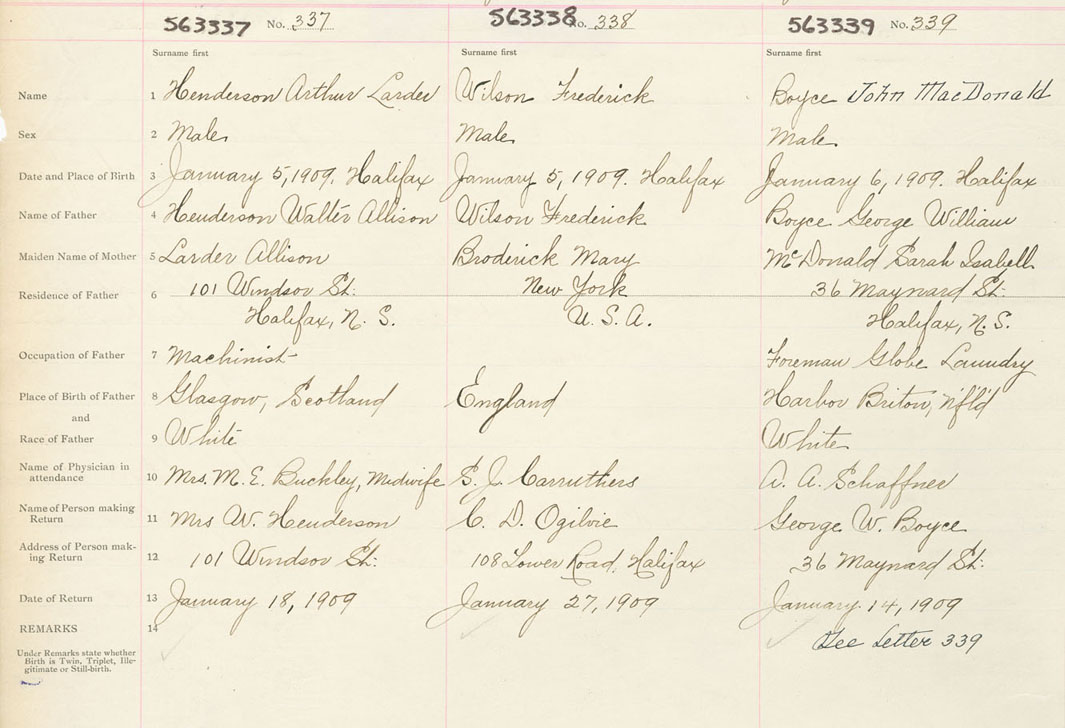 563337 No. 337 563338 No. 338 563339 No. 339
Surname first Surname first Surname first
Name 1 Henderson Arthur Larder Wilson Frederick Boyce John MacDonald
Sex 2 Male Male Male
Date and Place of Birth 3 January 5, 1909. Halifax January 5, 1909. Halifax January 6, 1909. Halifax
Name of Father 4 Henderson Walter Allison Wilson Frederick Boyce George William
Maiden Name of Mother 5 Larder Allison Broderick Mary McDonald Sarah Isabell
Residence of Father 6 101 Windsor St: New York 36 Maynard St:
Halifax, N. S. U. S. A. Halifax, N. S.
Occupation of Father 7 Machinist Foreman Globe Laundry
Place of Birth of Father 8 Glasgow, Scotland England Harbor Briton, Nfl'd
and
Race of Father 9 White White
Name of Physician in
attendance 10 Mrs. M. E. Buckley, Midwife S. J. Carruthers A. A. Schaffner
Name of Person making
Return 11 Mrs W. Henderson C. D. Ogilvie George W. Boyce
Address of Person mak-
ing Return 12 101 Windsor St: 108 Lower Road, Halifax 36 Maynard St:
Date of Return 13 January 18, 1909 January 27, 1909 January 14, 1909
REMARKS 14 See Letter 339
Under Remarks state whether
Birth is Twin, Triplet, Ille-
gitimate or Still-birth.